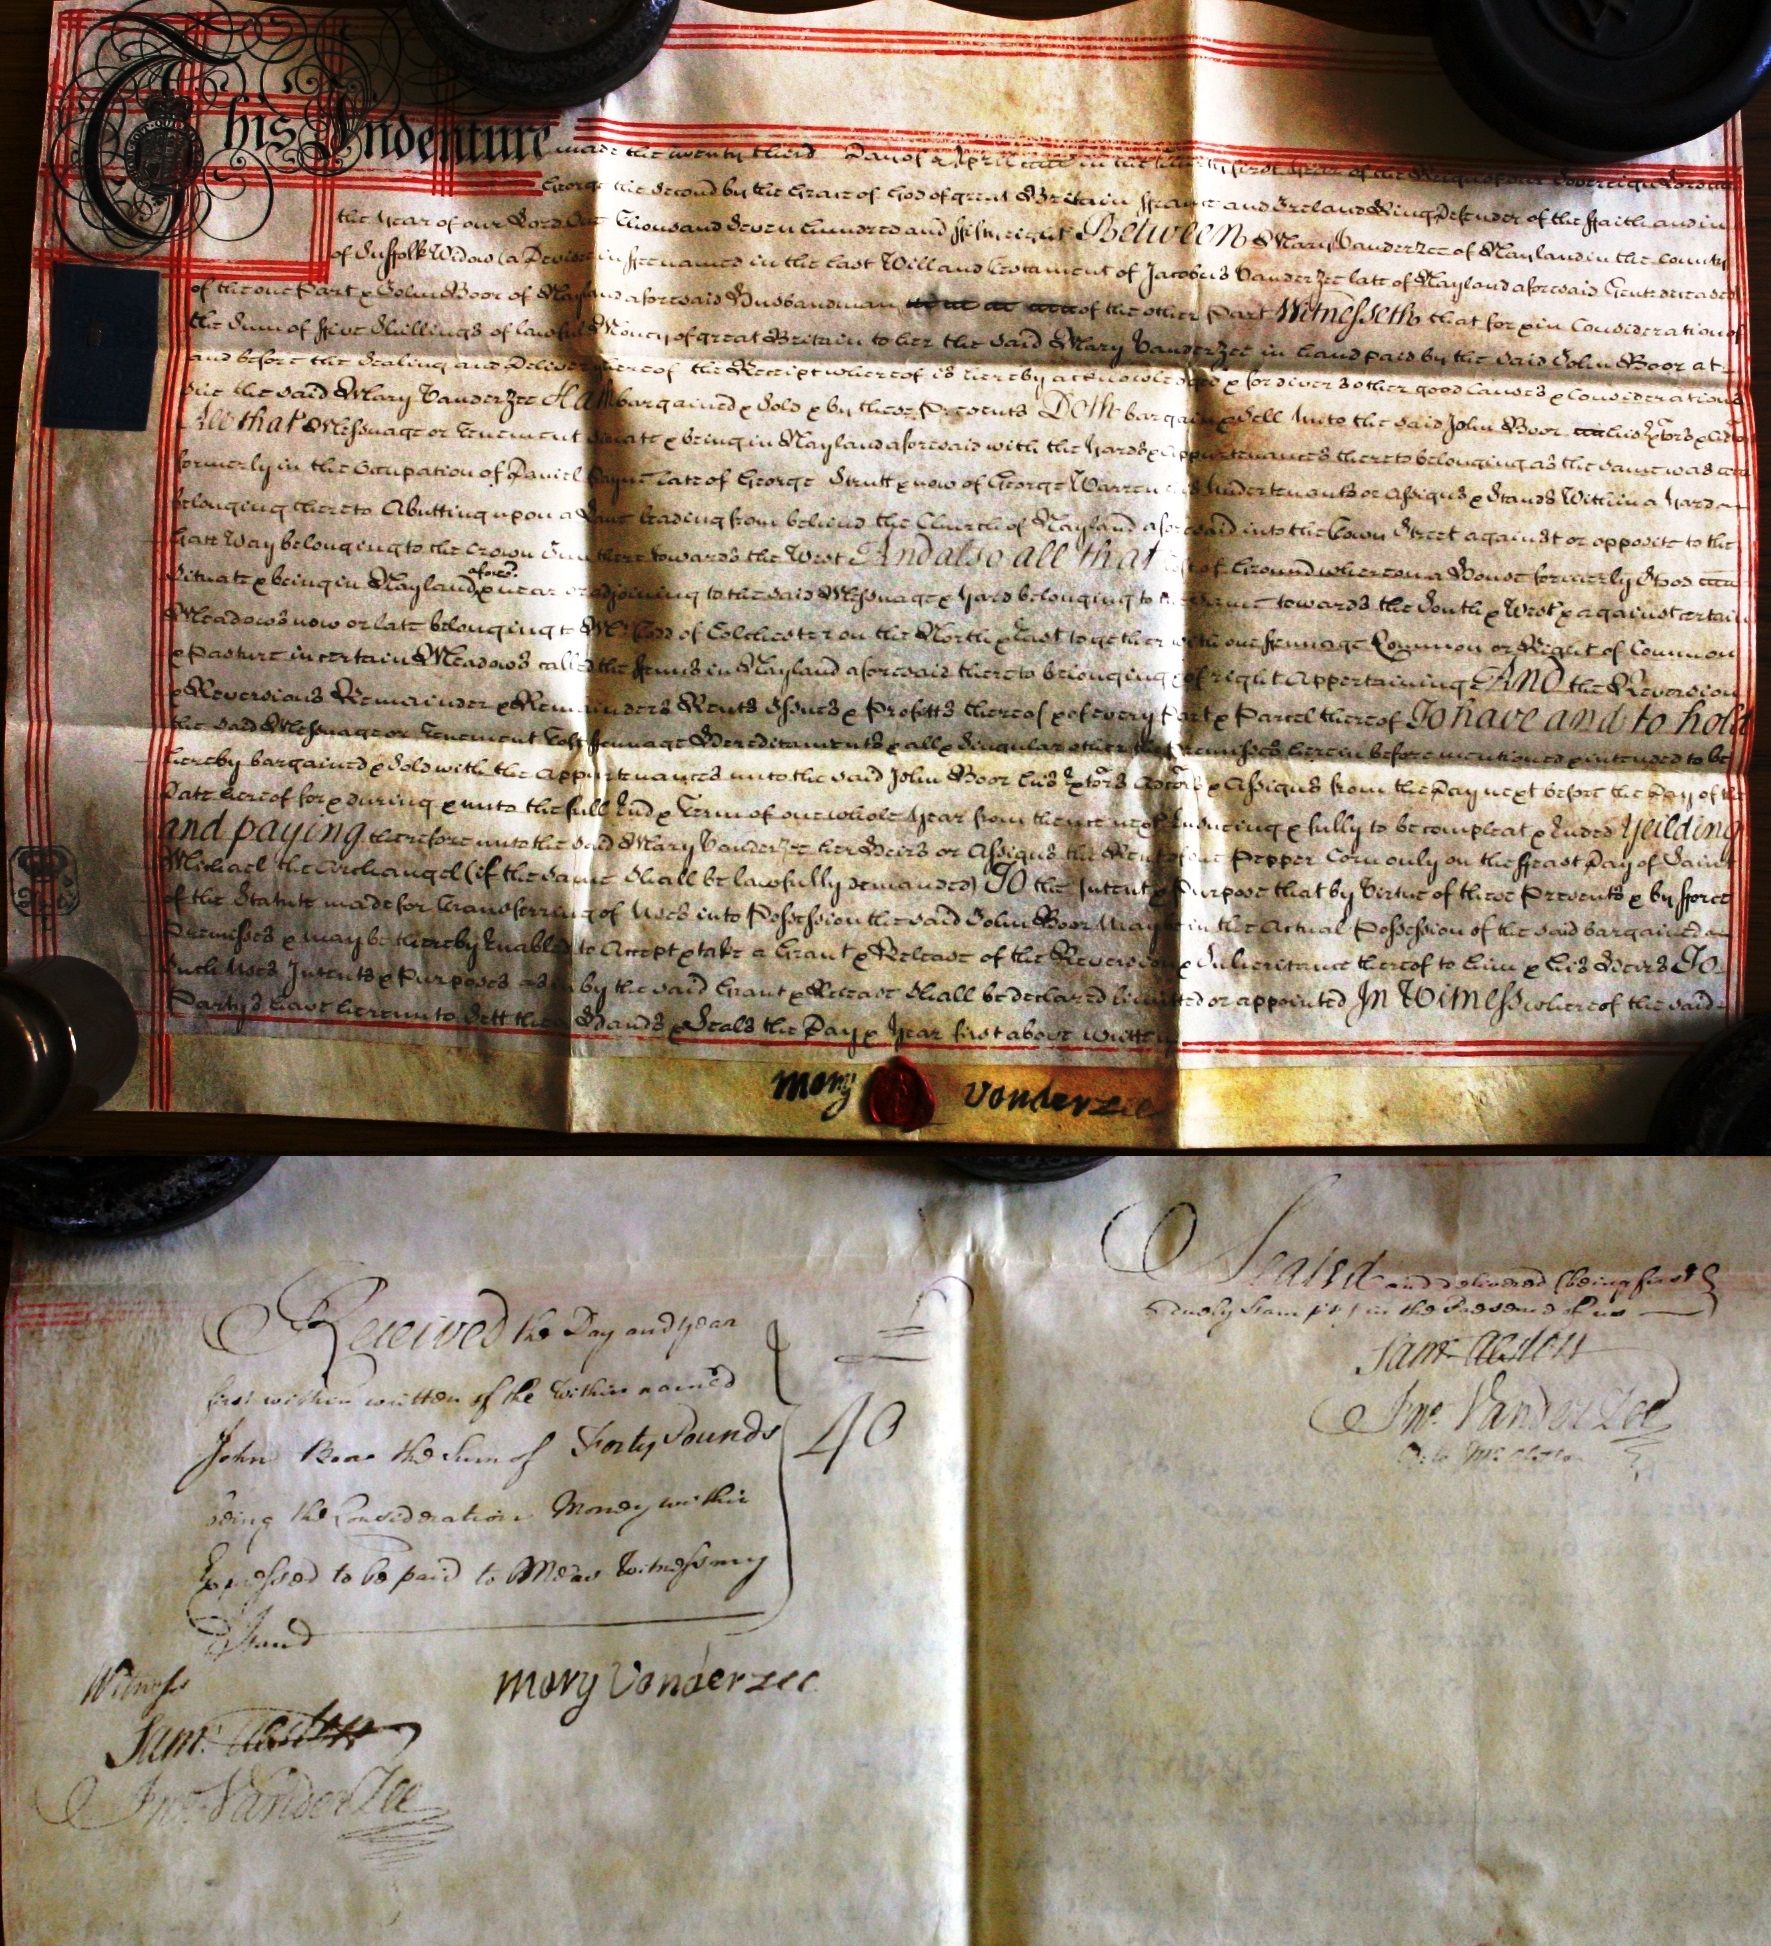 This Indenture made the twenty third Day of April in the thirty first Year of the Reign of our Sovereign Lord
George the Second by the Grace of God of great Britain ffrance and Ireland King Defender of the ffaith and in
the Year of our Lord One Thousand Seven hundred and fifty eight Between Mary Vanderzee of Nayland in the County
of Suffolk Widow (a Devisee in ffee named in the last Will and Testament of Jacobus Vanderzee late of Nayland aforesaid Gent deceased
of the one Part & John Boor of Nayland aforesaid Husbandman of the other Part Witnesseth that for & in Consideration of
the Sum of ffive Shillings of lawful Money of great Britain to her the said Mary Vanderzee in hand paid by the said John Boor at
and before the Sealing and Delivery hereof the Receipt whereof is hereby acknowledged & for divers other good Causes & Considerations
She the said Mary Vanderzee Hath bargained & Sold & by these Presents Doth bargain & Sell Unto the said John Boor his Extors &
All that Messuage or Tenement Situate & being in Nayland aforesaid with the Yards & Appurtenances thereto belonging as the same was
formerly in the Occupation of Daniel Payne late of George Strutt & now of George Warren his Undertenants or Assigns & Stands Within a Yard
belonging thereto Abutting upon a Lane leading from behind the Church of Nayland aforesaid into the Town Street against or opposite to the
Gate Way belonging to the Crown Inn there towards the West And also all that of Ground whereon a House formerly Stood
Situate & being in Nayland afores.d & near or adjoining to the said Messuage & Yard belonging to the same towards the South & West & against certain
Meadows now or late belonging to of Colchester on the North & East together with one ffennage Common or Right of Common
& Pasture in certain Meadows called the ffenns in Nayland aforesaid thereto belonging of right Appertaining And the Reversion
& Reversions Remainder & Remainders Rents Issues & Profitts thereof & of every Part & Parcel thereof To have and to hold
the said Messuage or Tenement ffennage Hereditaments & all & Singular other the Premisses herein before mentioned & intended to be
hereby bargained & Sold with the Appurtenances unto the said John Boor his Extors Admors & Assigns from the Day next before the Day of the
Date hereof for & during & unto the full End & Term of one whole Year from thence next Ensueing & fully to be compleat & Ended Yeilding
and paying therefore unto the said Mary Vanderzee her Heirs or Assigns the Rent of one Pepper Corn only on the ffeast Day of Saint
Michael the Archangel (if the same Shall be lawfully demanded) To the Intent & Purpose that by Virtue of these Presents & by fforce
of the Statute made for Transferring of Uses into Possession the said John Boor May be in the Actual Possession of the said bargained
Premisses & may be thereby Enabled to Accept & take a Grant & Release of the Reversion & Inheritance thereof to him & his Heirs To
Such Uses Intents & Purposes as in by the said Grant & Release Shall be declared limitted or appointed In Witness whereof the said
Partys have hereunto Sett their Hands & Seals the Day & Year first above written
Mary Vanderzee
Received the Day and year
first within written of the within named
John Boor the Sum of Forty Pounds
being the Consideration Money within
Expressed to be paid to Me as Witness my
Hand
£
40
Mary Vanderzee
Witness
Sam.l Alston
Jno. VanderZee
Sealed and delivered (being first
duely stampt) in the Presence of us
Sam.l Alston
Jno. VanderZee